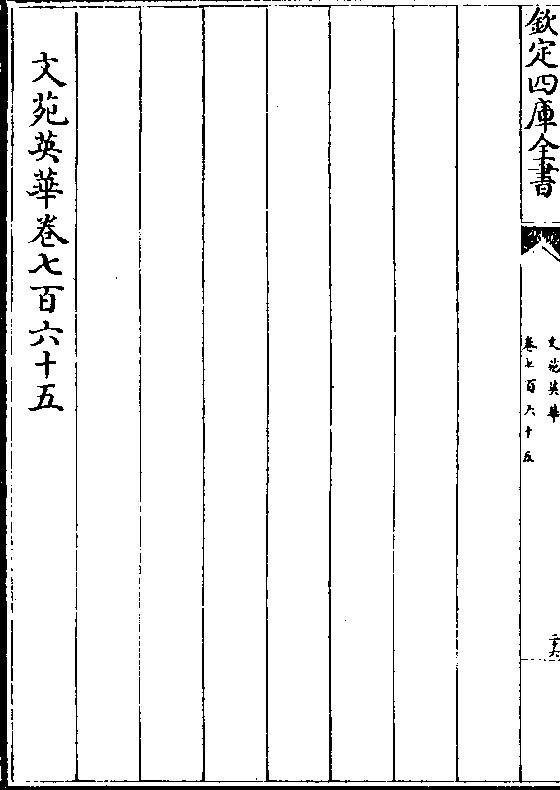 欽定四庫全書
文苑英華
卷七百六十五
文苑英華卷七百六十五